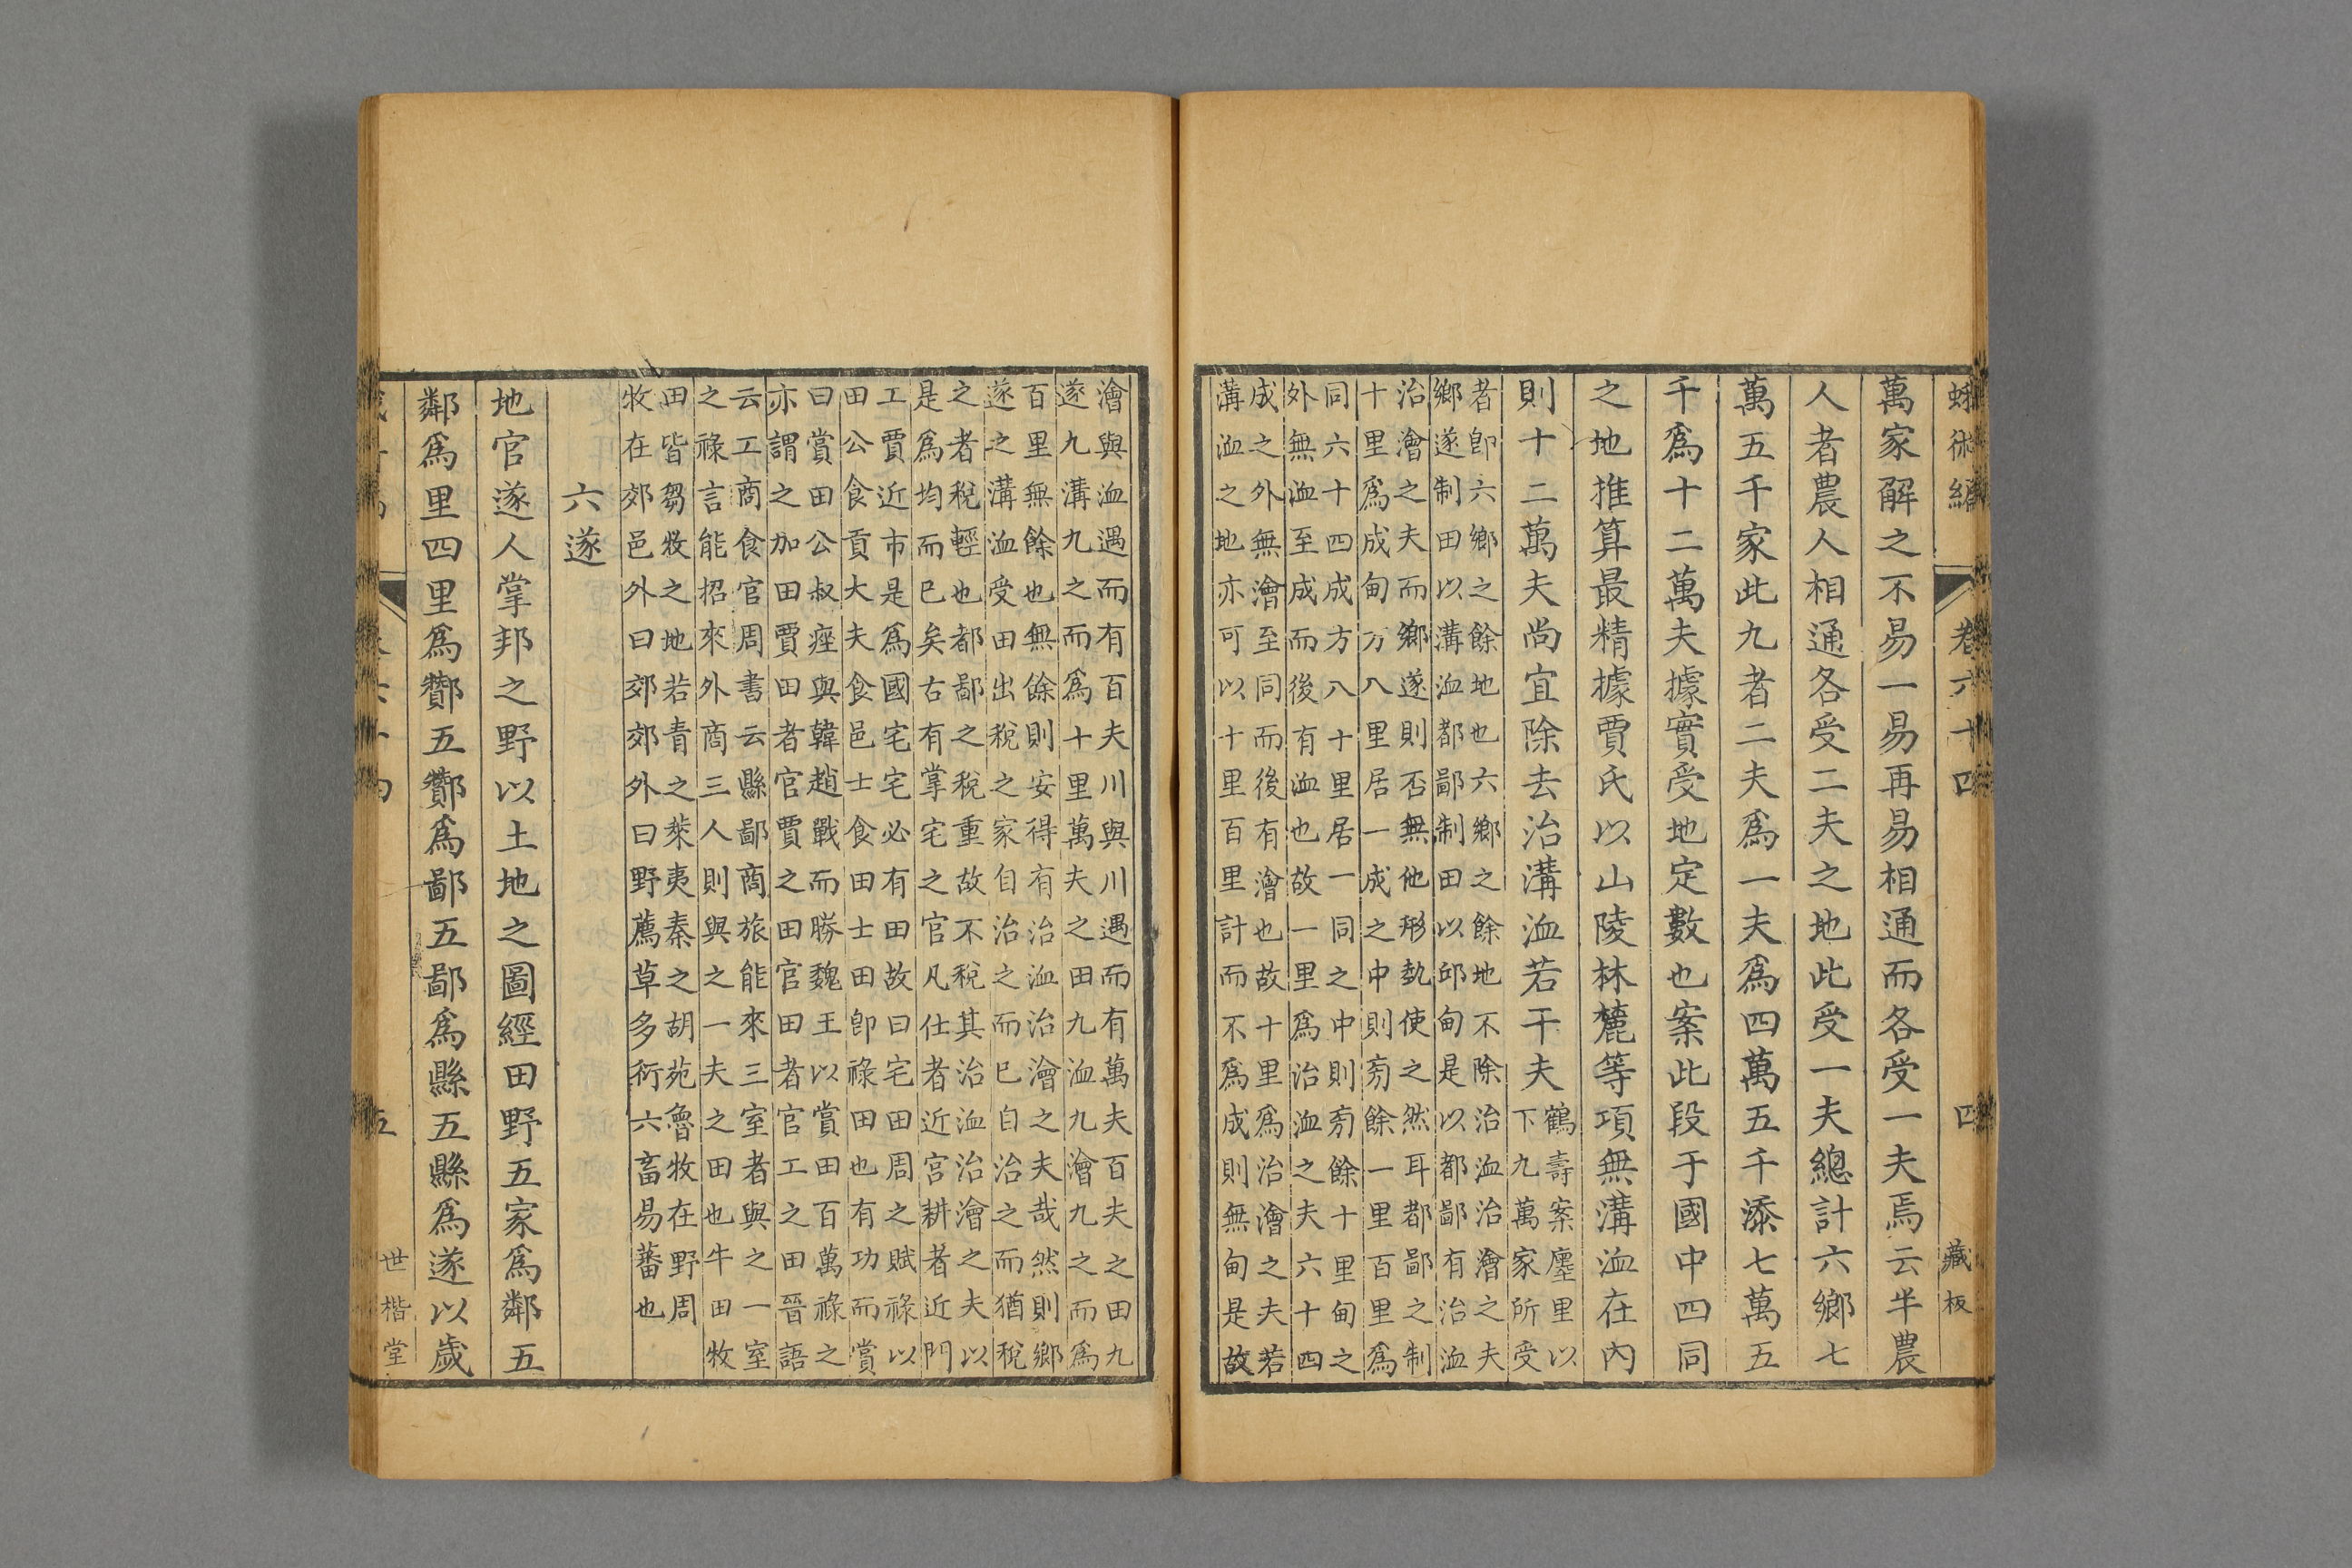 蛾術編 卷六十四 四 藏板
萬家解之不易一易再易相通而各受一夫焉云半農
人者農人相通各受二夫之地此受一夫總計六鄉七
萬五千家此九者二夫爲一夫爲四萬五千添七萬五
千爲十二萬夫據實受地定數也案此段于國中四同
之地推算最精據賈氏以山陵林麓等項無溝洫在內
則十二萬夫尚宜除去治溝洫若干夫
鶴壽案廛里以
下九萬家所受
者卽六鄉之餘地也六鄉之餘地不除治洫治澮之夫
鄉遂制田以溝洫都鄙制田以邱甸是以都鄙有治洫
治澮之夫而鄉遂則否無他形埶使之然耳都鄙之制
十里爲成甸方八里居一成之中則旁餘一里百里爲
同六十四成方八十里居一同之中則旁餘十里甸之
外無洫至成而後有洫也故一里爲治洫之夫六十四
成之外無澮至同而後有澮也故十里爲治澮之夫若
溝洫之地亦可以十里百里計而不爲成則無甸是故
澮與洫遇而有百夫川與川遇而有萬夫百夫之田九
遂九溝九之而爲十里萬夫之田九洫九澮九之而爲
百里無餘也無餘則安得有治洫治澮之夫哉然則鄉
遂之溝洫受田出稅之家自治之而已自治之而猶稅
之者稅輕也都鄙之稅重故不稅其治洫治澮之夫以
是爲均而已矣古有掌宅之官凡仕者近宮耕者近門
工賈近市是爲國宅宅必有田故曰宅田周之賦祿以
田公食貢大夫食邑士食田士田卽祿田也有功而賞
曰賞田公叔痤與韓趙戰而勝魏王以賞田百萬祿之
亦謂之加田賈田者官賈之田官田者官工之田晉語
云工商食官周書云縣鄙商旅能來三室者與之一室
之祿言能招來外商三人則與之一夫之田也牛田牧
田皆芻牧之地若青之萊夷秦之胡苑魯牧在野周
牧在郊邑外曰郊郊外曰野薦草多衍六畜易蕃也
六遂
地官遂人掌邦之野以土地之圖經田野五家爲鄰五
鄰爲里四里爲酇五酇爲鄙五鄙爲縣五縣爲遂以歲
五 世楷堂